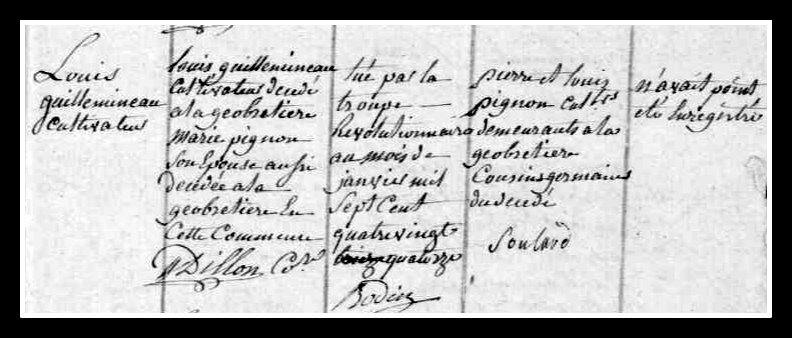 Louis
guillemineau
cultivateur
louis guillemineau
cultivateur decedé
a la geobretiere
marie pignon
son Epouse aussi
decedée a la
geobretiere En
Cette Commune
Dillon
tué par la
troupe
Revolutionnaire
au mois de
janvier mil
Sept Cent
quatre vingt
quatorze
Bodin
pierre et louis
pignon cult.rs
demeurants a la
geobretiere
Cousins germains
du decedé
Soulard
n'avait point
été Enregistré